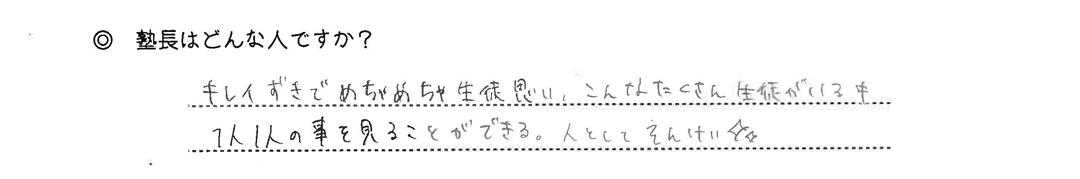 ◎ 塾長はどんな人ですか?
キレイずきでめちゃめちゃ生徒思い、こんなたくさん生徒がいる中
1人1人の事を見ることができる。人としてそんけい☆☆